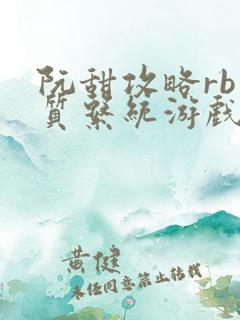 阮甜攻略rb
质系统游戏
黄健
未经同意禁止转载